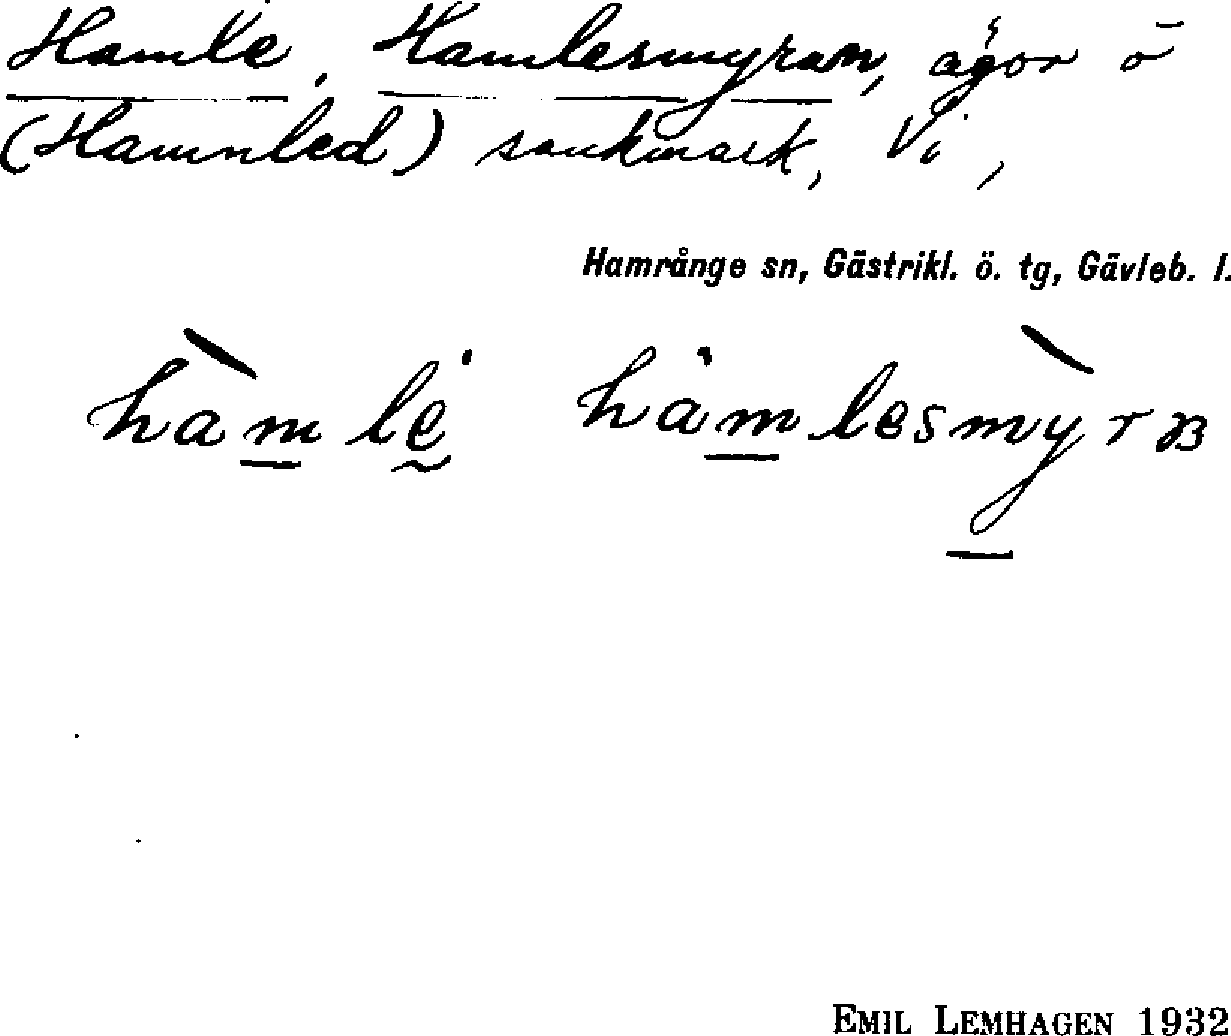 Hamle, Hamlesmyran, ägor o
(Hamnled) sankmark, Vi,
Hamrånge sn, Gästrikl. ö. tg, Gävleb. l.
hàmlẹ' hȧmlesmỳrɐ
EMIL LEMHAGEN 1932